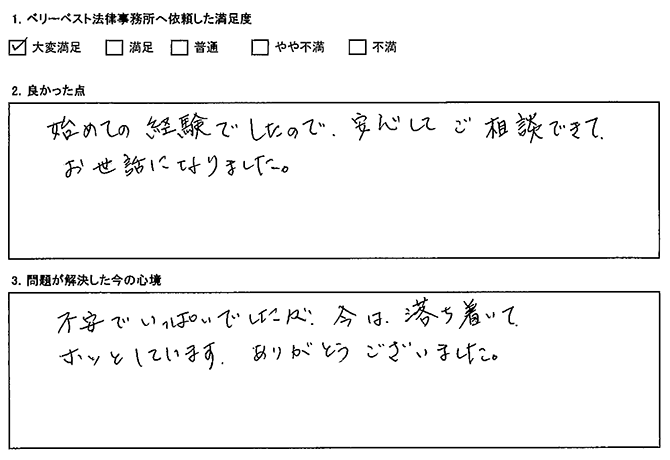 1. ベリーベスト法律事務所へ依頼した満足度
大変満足 満足 普通 やや不満 不満
2. 良かった点
始めての経験でしたので、安心して ご相談できて、
お世話になりました。
3. 問題が解決した今の心境
不安でいっぱいでしたが、今は、落ち着いて、
ホッとしています。ありがとうございました。